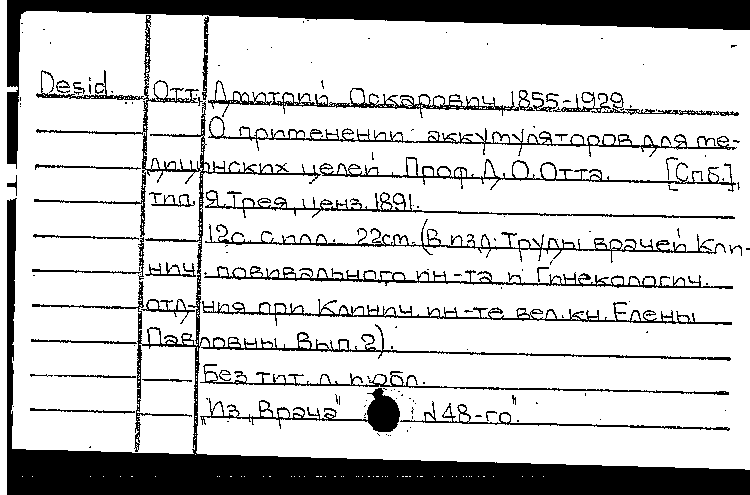 Desid. Отт, Дмитрий Оскарович, 1855-1929.
О применении аккумуляторов для ме-
дицинских целей. Проф. Д. О. Отта. [Спб.],
тип. Я. Трея, ценз. 1891.
12с. с илл. 22см. (В изд: Труды врачей Клин-
нич. повивального ин-та и Гинекологич.
отд-ния при Клинич. ин-те вел. кн. Елены
Павловны. Вып. 2).
Без тит. л. и обл.
"Из "Врача" № 48-го".